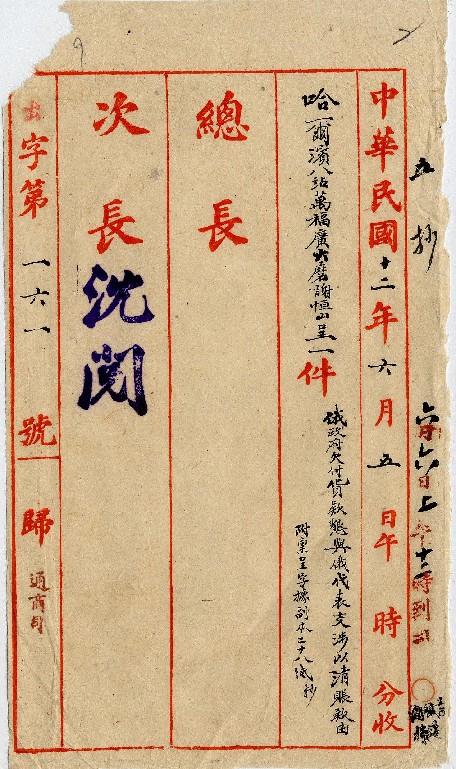 五抄
六月六日上午十二時到司
中華民國十二年六月五日午時分收
哈爾濱八站萬福廣火磨謝恒山呈一件
俄政府欠付貨款懇與俄代表交涉以清賬款由
附稟呈字據副本二十八紙抄
總長
次長
沈閱
去字第一六一號歸通商司